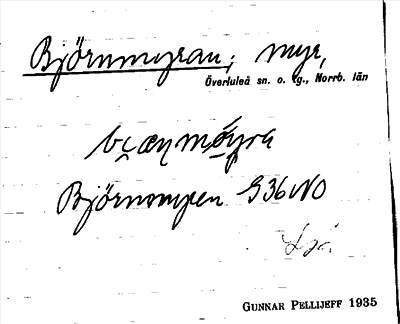 Björnmyran; myr,
Överluleå sn. o. tg., Norrb. län
Björnmyren G36NO
GUNNAR PELLIJEFF 1935